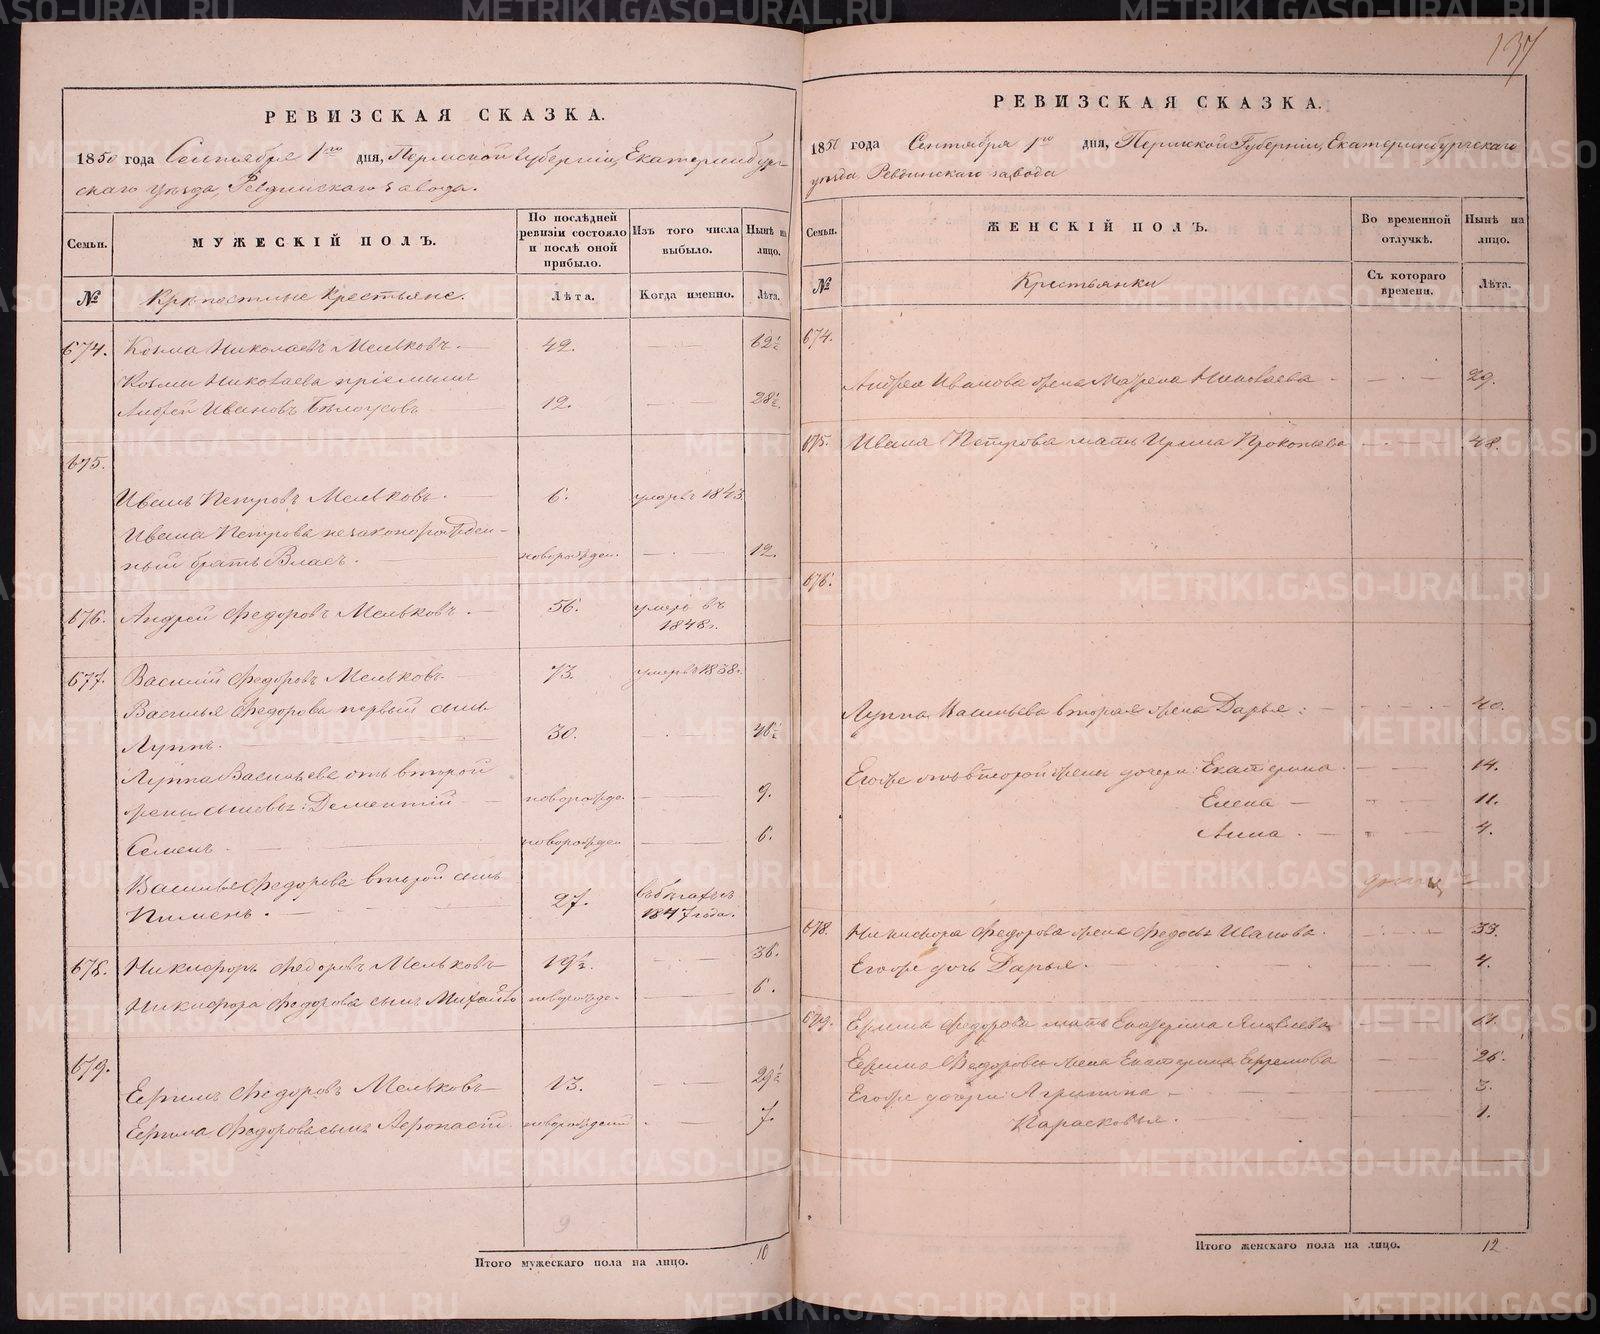 137
РЕВИЗСКАЯ СКАЗКА.
1850 года Сентября 1го дня, Пермской Губерніи, Екатеринбург-
скаго уѣзда, Ревдинскаго завода.
Семьи.
МУЖЕСКІЙ ПОЛЪ.
По послѣдней ревизіи состояло и послѣ оной прибыло.
Изъ того числа выбыло.
Нынѣ на лицо.
№
Крѣпостные Крестьяне.
Лѣта.
Когда именно.
Лѣта.
674. Козма Николаевъ Мельковъ. 49. 62½
Козмы Николаева пріемышъ
Андрей Ивановъ Бѣлоусовъ 12. 28½.
675.
Иванъ Петровъ Мельковъ. 6. умеръ 1843
Ивана Петрова незаконорожден-
ный братъ Власъ. новорожден. 12.
676. Андрей Федоровъ Мельковъ. 56. умеръ въ 1848г.
677. Василий Федоровъ Мельковъ. 73. умеръ 1838.
Василья Федорова первый сынъ
Луппъ. 30. 48½
Луппа Васильева отъ второй
жены сыновья: Дементій новорожде. 9.
Семенъ. новорожден 6.
Василья Федорова второй сынъ
Пименъ. 27. въ бѣгахъ съ 1847 года.
678. Никифоръ Федоровъ Мельковъ 19½. 36.
Никифора Федорова сынъ Михайло новорожде. 6.
679.
Ефимъ Федоровъ Мельковъ 13. 29½
Ефима Федорова сынъ новорожденый 7.
9
Итого мужескаго пола на лицо. 10
РЕВИЗСКАЯ СКАЗКА.
1850 года Сентября 1го дня, Пермской Губерніи, Екатеринбургскаго
уѣзда Ревдинскаго завода
Семьи.
ЖЕНСКІЙ ПОЛЪ.
Во временной отлучкѣ.
Нынѣ на лицо.
№
Крестьянки
Съ котораго времени.
Лѣта.
674.
Андрея Иванова жена Матрена Николаева 29.
675. Ивана Петрова мать Ирина Прокопьева 48.
676.
Луппа Васильева вторая жена Дарья. 40.
Егоже отъ второй жены дочери: Екатерина 14.
Елена 11.
Анна 4.
678. Никифора Федорова жена Федосья Иванова. 33.
Егоже дочь Дарья. 4.
679. Ефима Федорова мать Екатерина Яковлева 61.
Ефима Федорова жена Екатерина Ефремова 26.
Егоже дочери: Агрипина 3.
Парасковья. 1.
Итого женскаго пола на лицо. 12
METRIKI.GASO-URAL.RU